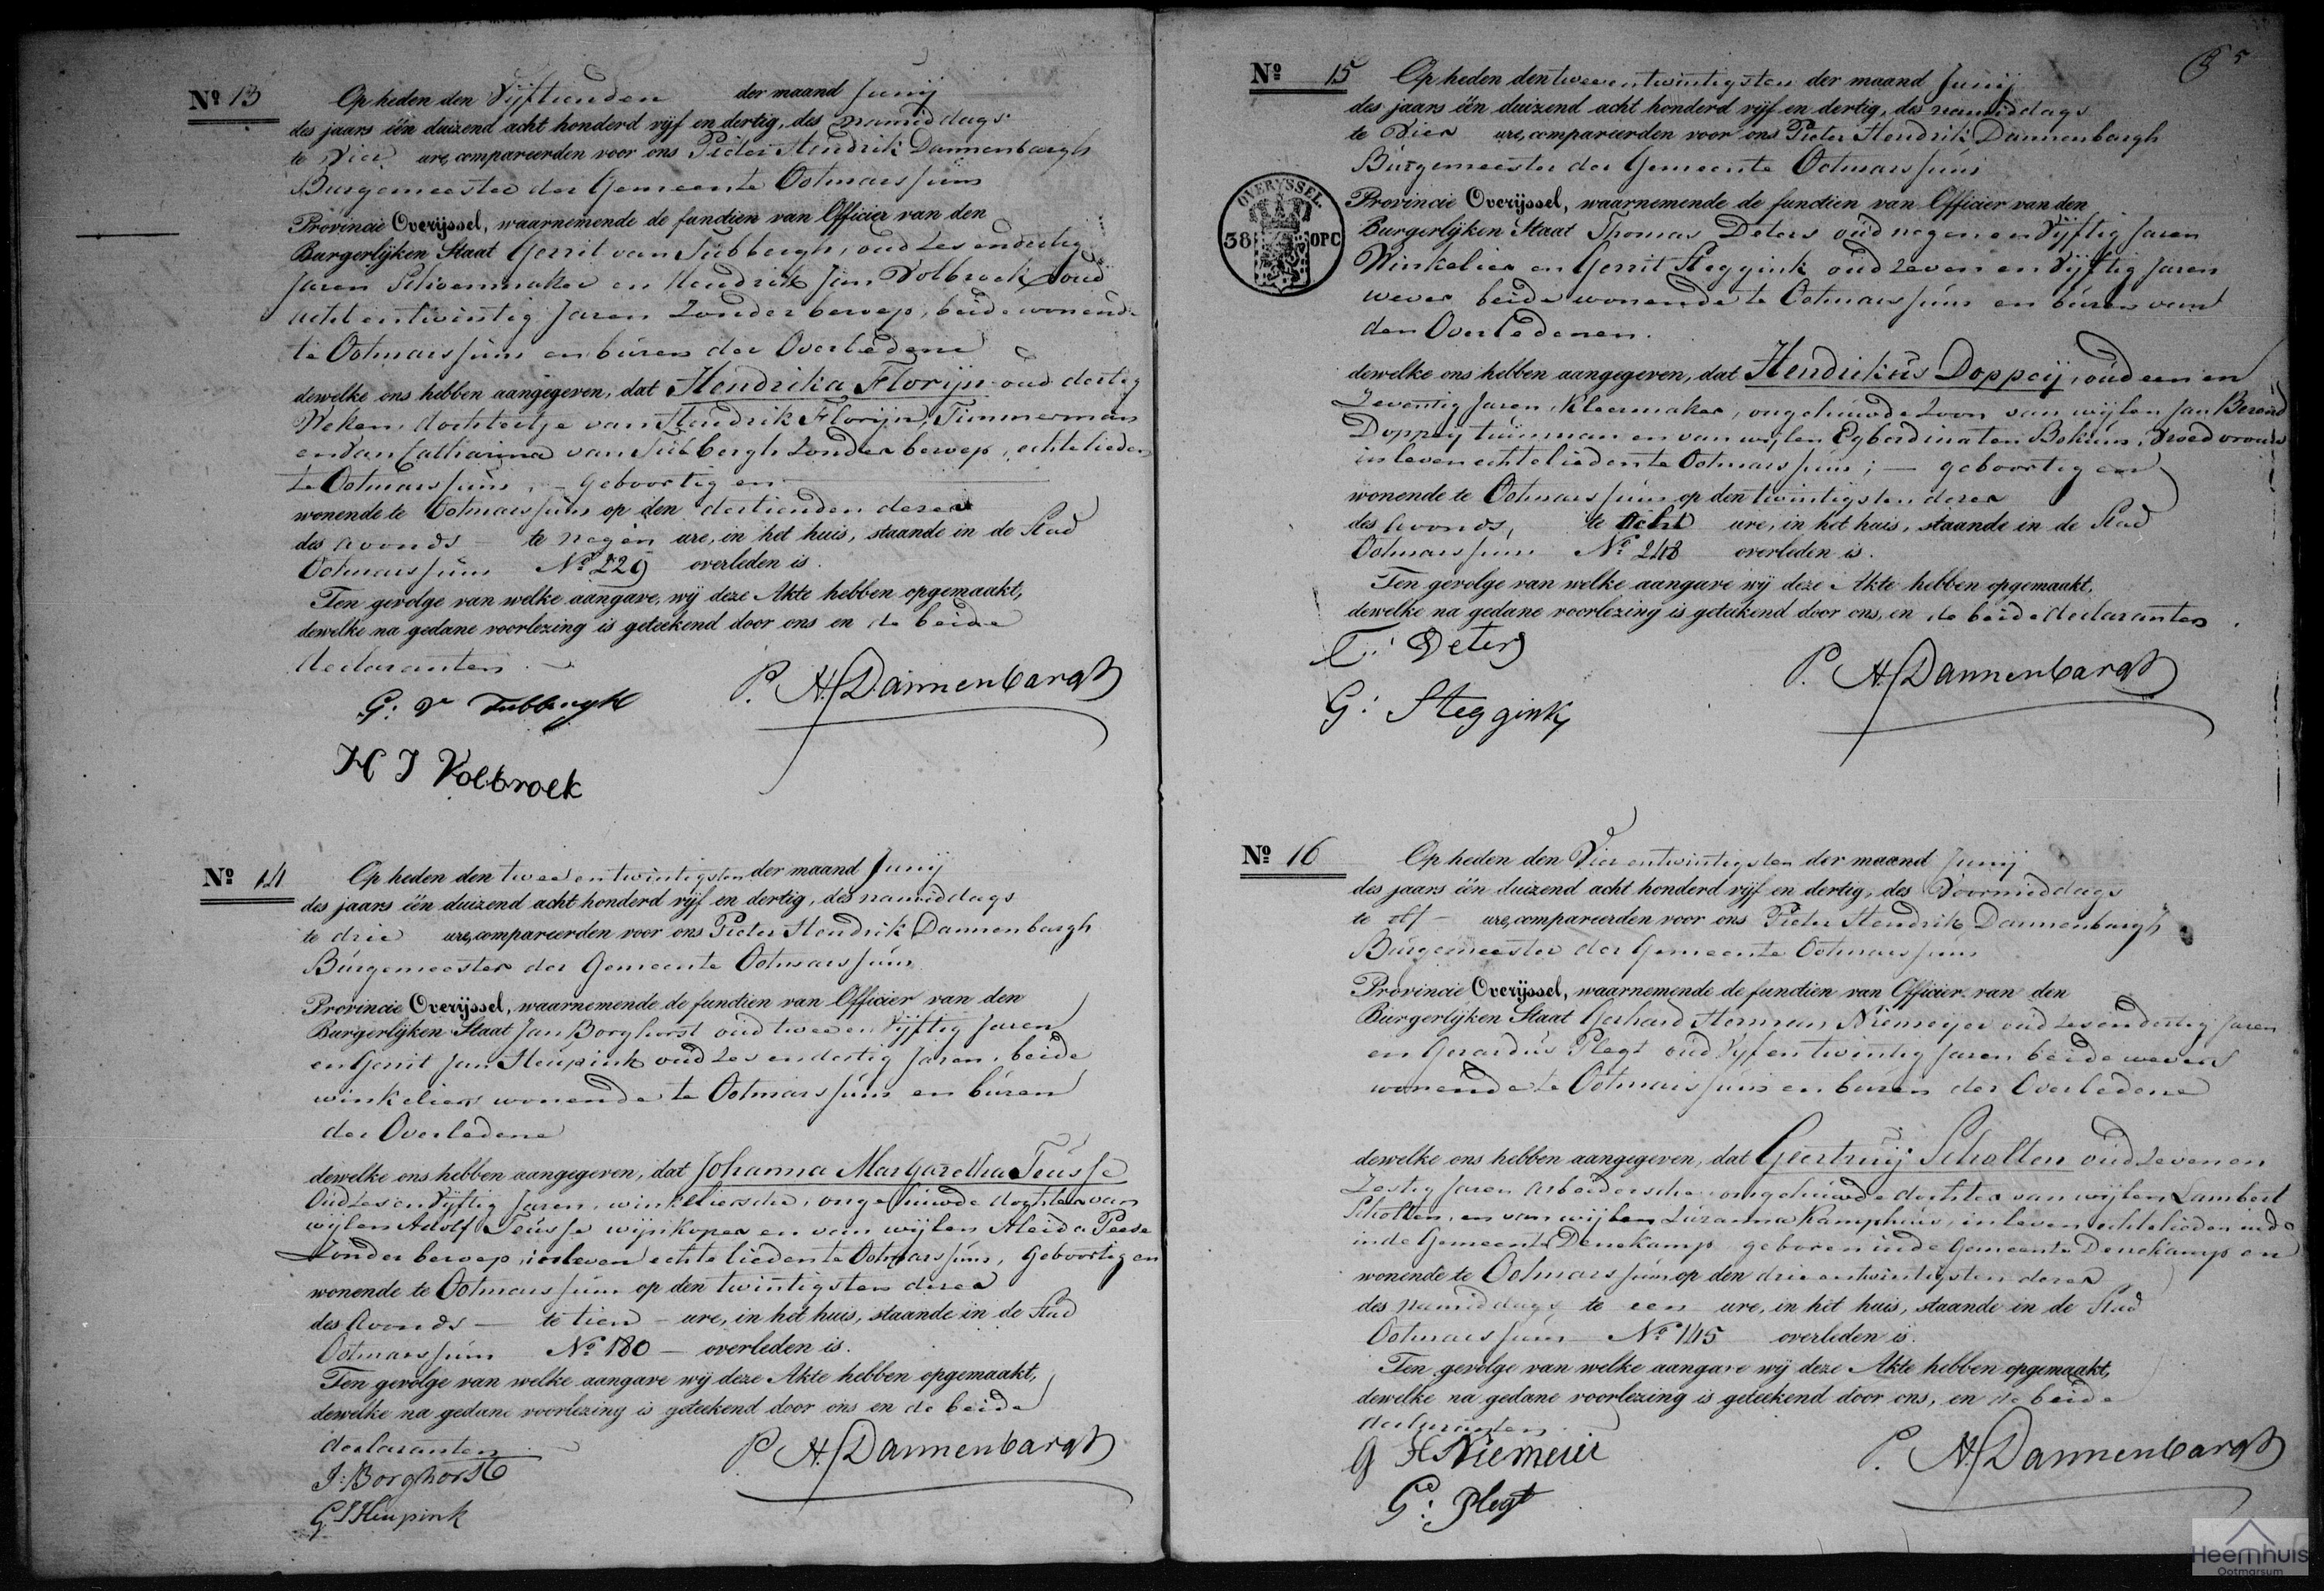 Nº 13
Op heden den Vijftienden der maand Junij
des jaars één duizend acht honderd vijf en dertig, des namiddags
te Vier ure, compareerden voor ons Pieter Hendrik Dannenbargh
Burgemeester der Gemeente Ootmarssum
Provincie Overijssel, waarnemende de functien van Officier van den
Burgerlijken Staat Gerrit van Tubbergh, oud zes en dertig
Jaren Schoenmaker en Hendrik Jan Volbroek oud
acht en twintig Jaren Zonder beroep, beide wonende
te Ootmarssum en buren der Overledene
dewelke ons hebben aangegeven, dat Hendrika Florijn oud dertig
Weken, dochtertje van Hendrik Florijn, Timmerman
en van Catharina van Tubbergh Zonder beroep, echtelieden
te Ootmarssum, – geboortig en
wonende te Ootmarssum op den dertienden dezer
des avonds – te negen ure, in het huis, staande in de Stad
Ootmarssum Nº 229 overleden is.
Ten gevolge van welke aangave, wij deze Akte hebben opgemaakt,
dewelke na gedane voorlezing is geteekend door ons en de beide
declaranten.
P. H. Dannenbargh
G: V Tubbergh
H J Volbroek
Nº 14
Op heden den twee en twintigsten der maand Junij
des jaars één duizend acht honderd vijf en dertig, des namiddags
te drie ure, compareerden voor ons Pieter Hendrik Dannenbargh
Burgemeester der Gemeente Ootmarssum
Provincie Overijssel, waarnemende de functien van Officier van den
Burgerlijken Staat Jan Borghorst oud twee en Vijftig Jaren
en Gerrit Jan Heupink oud zes en dertig Jaren, beide
winkeliers wonende te Ootmarssum en buren
der Overledene
dewelke ons hebben aangegeven, dat Johanna Margaretha Teusse
Oud zes en Vijftig Jaren, winkeliersche, ongehuwde dochter van
wijlen Adolf Teusse wijnkoper en van wijlen Aleida Peese
Zonder beroep, in leven echtelieden te Ootmarssum, Geboortig en
wonende te Ootmarssum op den twintigsten dezer
des Avonds – te tien – ure, in het huis, staande in de Stad
Ootmarssum Nº 180 – overleden is.
Ten gevolge van welke aangave wij deze Akte hebben opgemaakt,
dewelke na gedane voorlezing is geteekend door ons en de beide
declaranten
P. H. Dannenbargh
J: Borghorst
G J Heupink
5
Nº 15
Op heden den twee en twintigsten der maand Junij
des jaars één duizend acht honderd vijf en dertig, des namiddags
te Vier ure, compareerden voor ons Pieter Hendrik Dannenbargh
Burgemeester der Gemeente Ootmarssum
Provincie Overijssel, waarnemende de functien van Officier van den
OVERYSSEL.
38 OPC
Burgerlijken Staat Thomas Deters oud negen en Vijftig Jaren
Winkelier en Gerrit Steggink oud zeven en Vijftig Jaren
wever beide wonende te Ootmarssum en buren van
den Overledenen.
dewelke ons hebben aangegeven, dat Hendrikus Doppeij, oud een en
Zeventig Jaren, Kleermaker, ongehuwde Zoon van wijlen Jan Berend
Doppeij tuinman en van wijlen Egberdina ten Bokum, Vroedvrouw
in leven echtelieden te Ootmarssum; – geboortig en
wonende te Ootmarssum op den twintigsten dezer
des Avonds, te Acht ure, in het huis, staande in de Stad
Ootmarssum Nº 248 overleden is.
Ten gevolge van welke aangave wij deze Akte hebben opgemaakt,
dewelke na gedane voorlezing is geteekend door ons, en de beide declaranten.
T: Deters
P. H. Dannenbargh
G: Steggink
Nº 16
Op heden den Vier en twintigsten der maand Junij
des jaars één duizend acht honderd vijf en dertig, des Voormiddags
te elf – ure, compareerden voor ons Pieter Hendrik Dannenbargh
Burgemeester der Gemeente Ootmarssum
Provincie Overijssel, waarnemende de functien van Officier van den
Burgerlijken Staat Gerhard Herman Niemeijer oud zes en dertig Jaren
en Gerardus Plegt oud Vijf en twintig Jaren beide wevers
wonende te Ootmarssum en buren der Overledene
dewelke ons hebben aangegeven, dat Geertruij Scholten oud zeven en
Zestig Jaren Arbeidersche ongehuwde dochter van wijlen Lambert
Scholten, en van wijlen Zuzanna Kamphuis, in leven echtelieden inde
inde Gemeente Denekamp geboren in de Gemeente Denekamp en
wonende te Ootmarssum op den drie en twintigsten dezer
des namiddags te een ure, in het huis, staande in de Stad
Ootmarssum Nº 145 overleden is.
Ten gevolge van welke aangave wij deze Akte hebben opgemaakt,
dewelke na gedane voorlezing is geteekend door ons, en de beide
declaranten
P. H. Dannenbargh
G H Niemeier
G: Plegt
Heemhuis
Ootmarsum